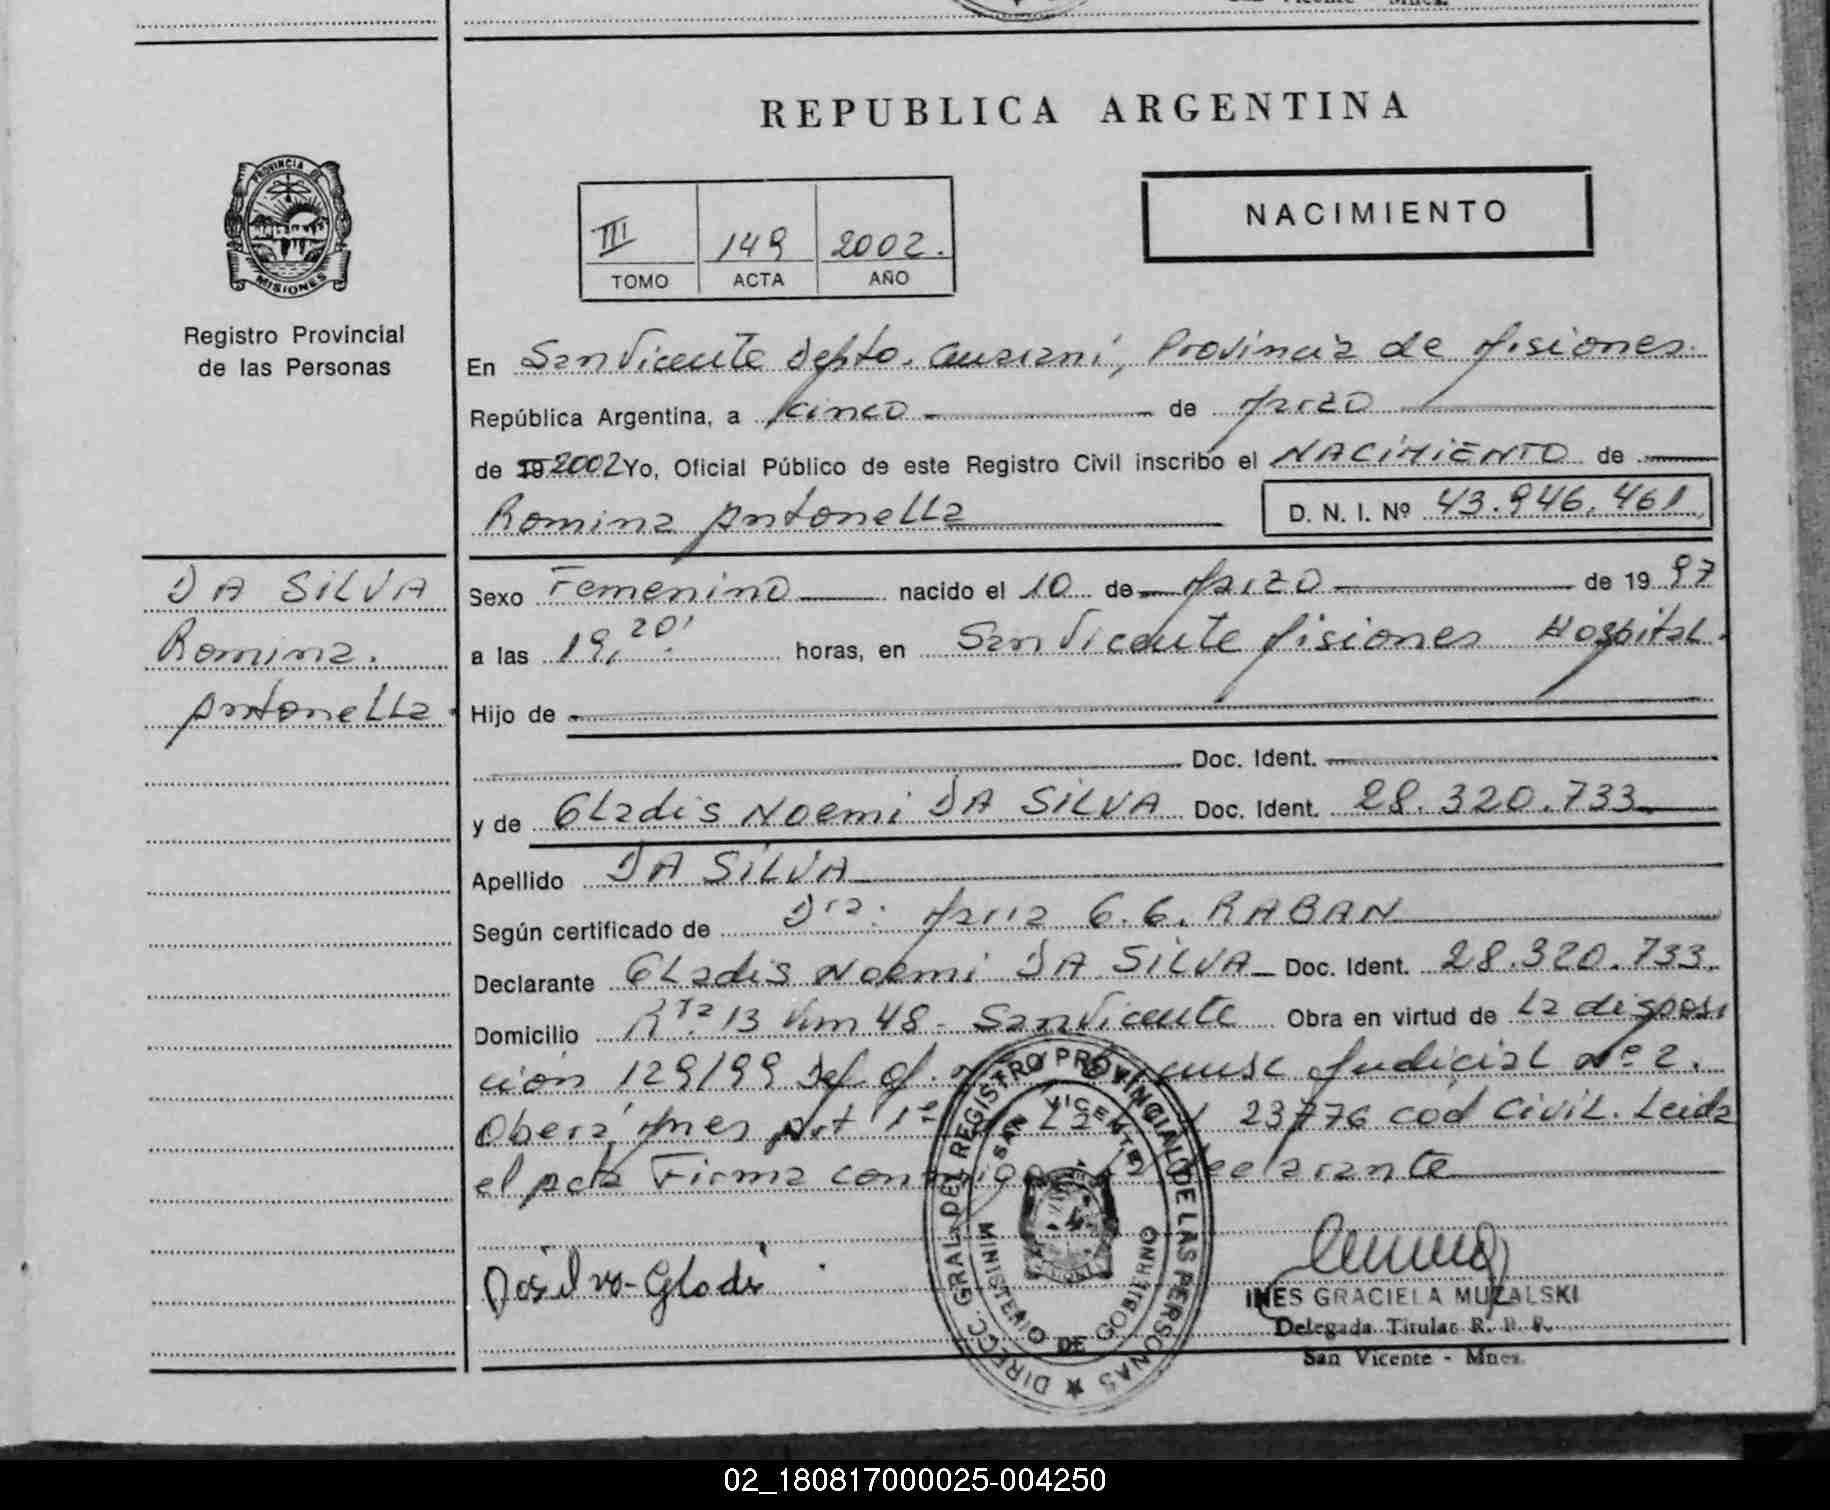 San Vicente - Mnes.
REPUBLICA ARGENTINA
PROVINCIA DE
MISIONES
Registro Provincial
de las Personas
III 149 2002.
TOMO ACTA AÑO
NACIMIENTO
En San Vicente Depto. Guarani, Provincia de Misiones.
República Argentina, a cinco de Marzo
de 19 2002 Yo, Oficial Público de este Registro Civil inscribo el NACIMIENTO de
Romina Antonella D. N. I. Nº 43.946.461
DA SILVA
Romina.
Antonella.
Sexo Femenino nacido el 10 de Marzo de 19 97
a las 19,20' horas, en San Vicente Misiones Hospital.
Hijo de
Doc. Ident.
y de Gladis Noemi DA SILVA Doc. Ident. 28.320.733
Apellido DA SILVA
Según certificado de Dra: Maria G.G. RABAN
Declarante Gladis Noemi DA SILVA Doc. Ident. 28.320.733.
Domicilio Rta 13 Km 48 - San Vicente Obra en virtud de La disposi
cion 129/99 Def. Of. Judicial Nº 2.
Oberá, Mnes Art 1º 23776 cod Civil. Leida
el acta Firma conmigo la declarante
Da silva - Gladi
DIRECC. GRAL. DEL REGISTRO PROVINCIAL DE LAS PERSONAS
SAN VICENTE
MINISTERIO DE GOBIERNO
INES GRACIELA MUZALSKI
Delegada Titular R. P. P.
San Vicente - Mnes.
02_180817000025-004250